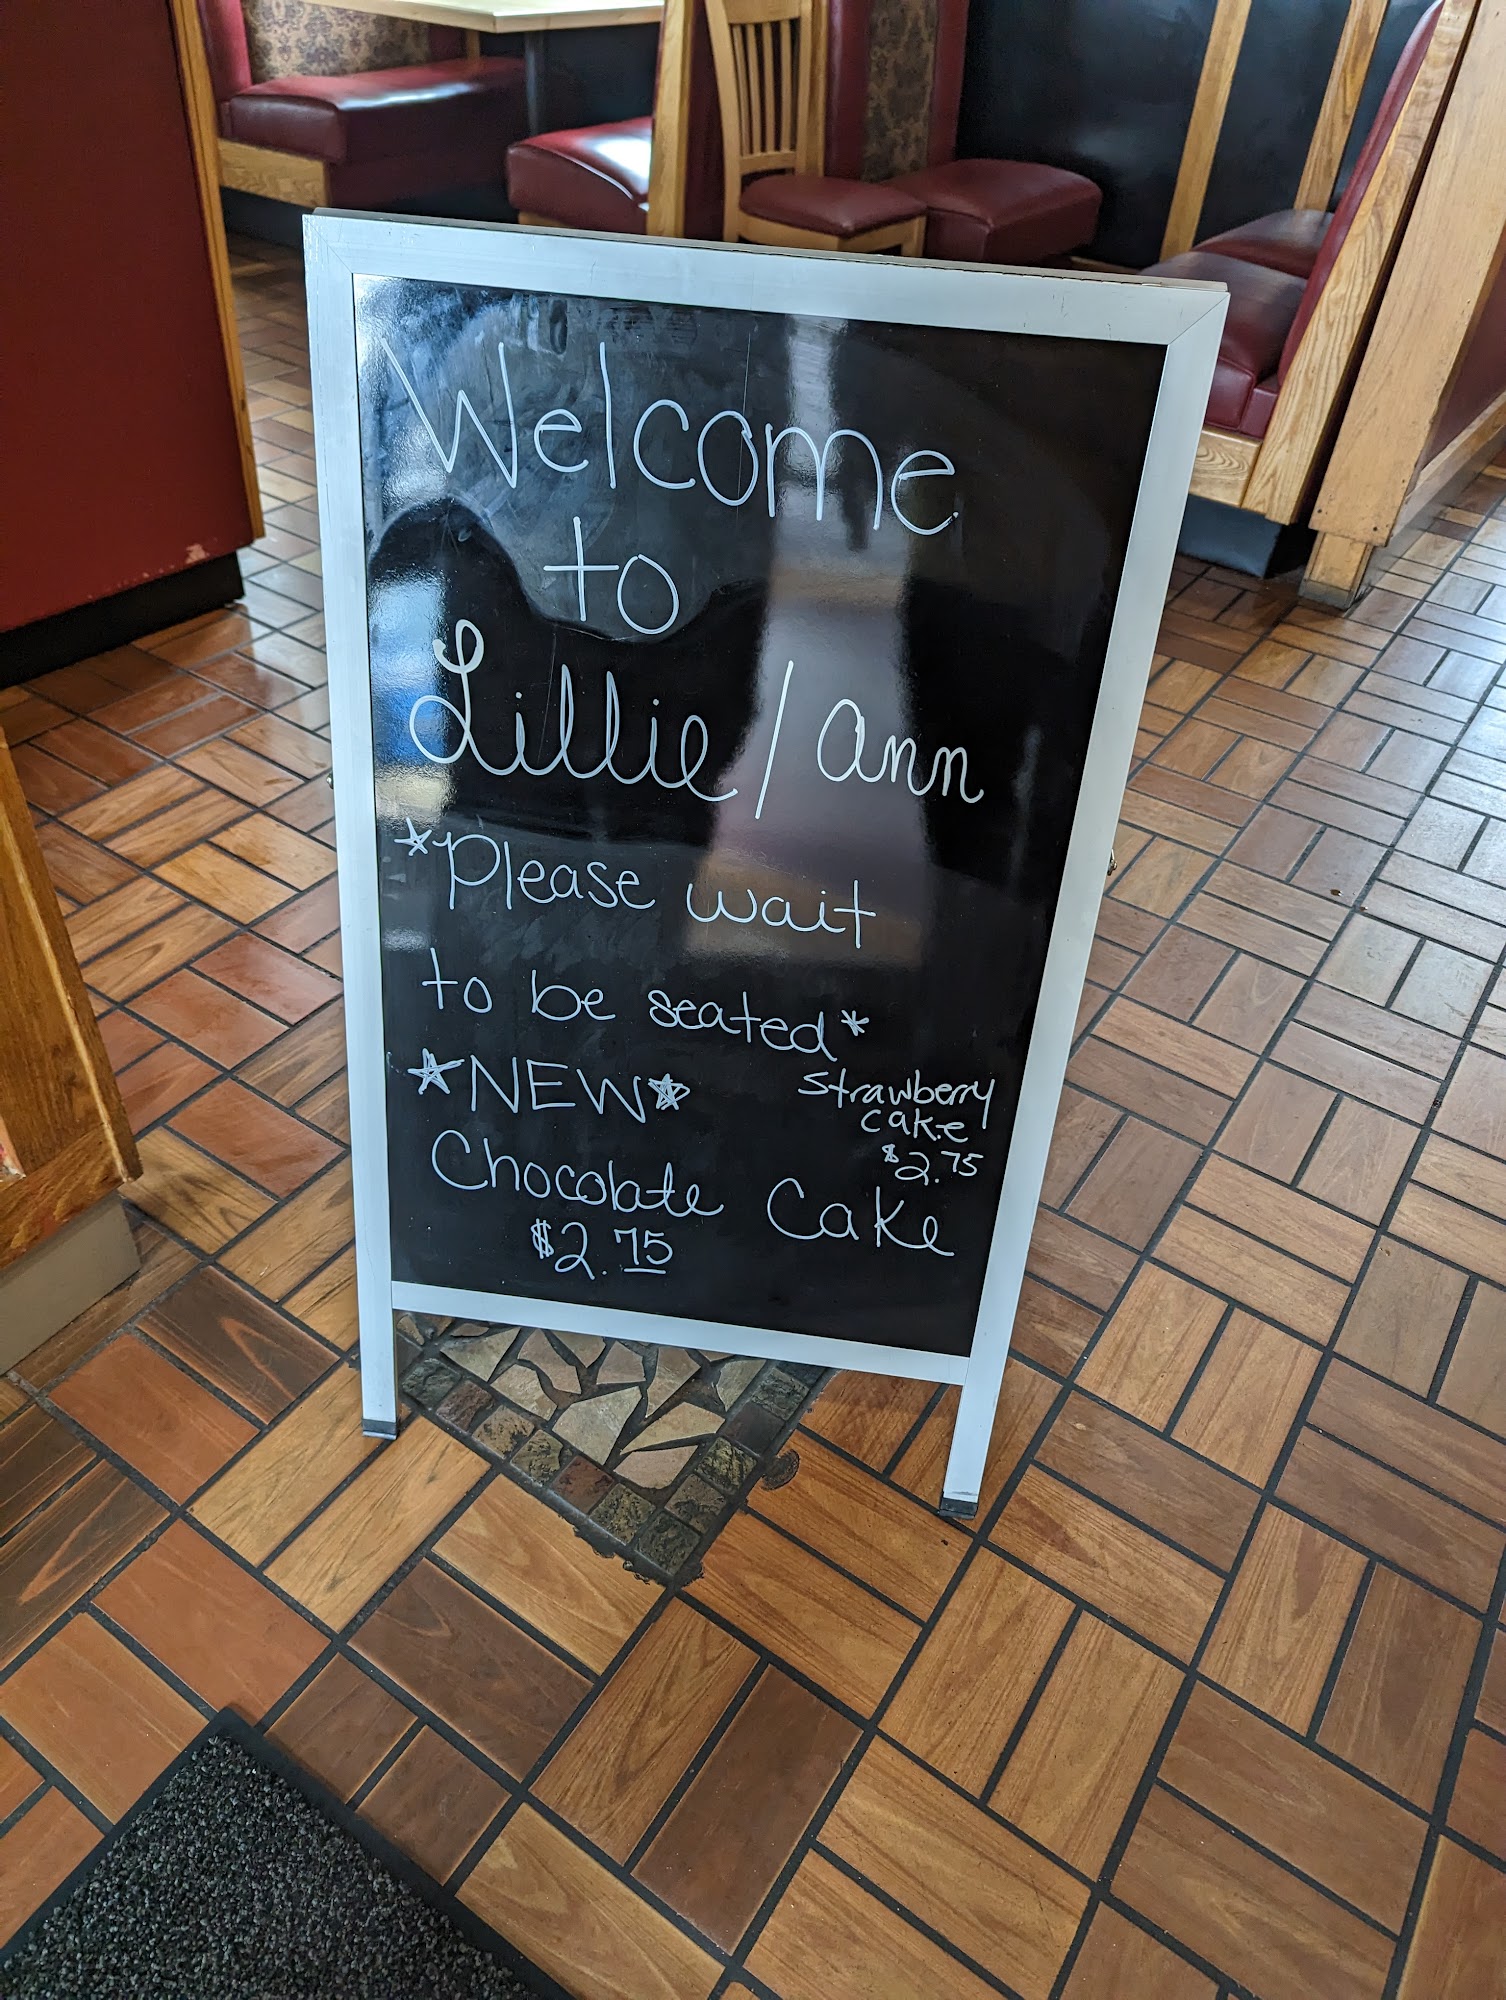 Welcome
to
Lillie/Ann
*Please wait
to be seated*
*NEW*
Chocolate Cake
$2.75
Strawberry
cake
$2.75